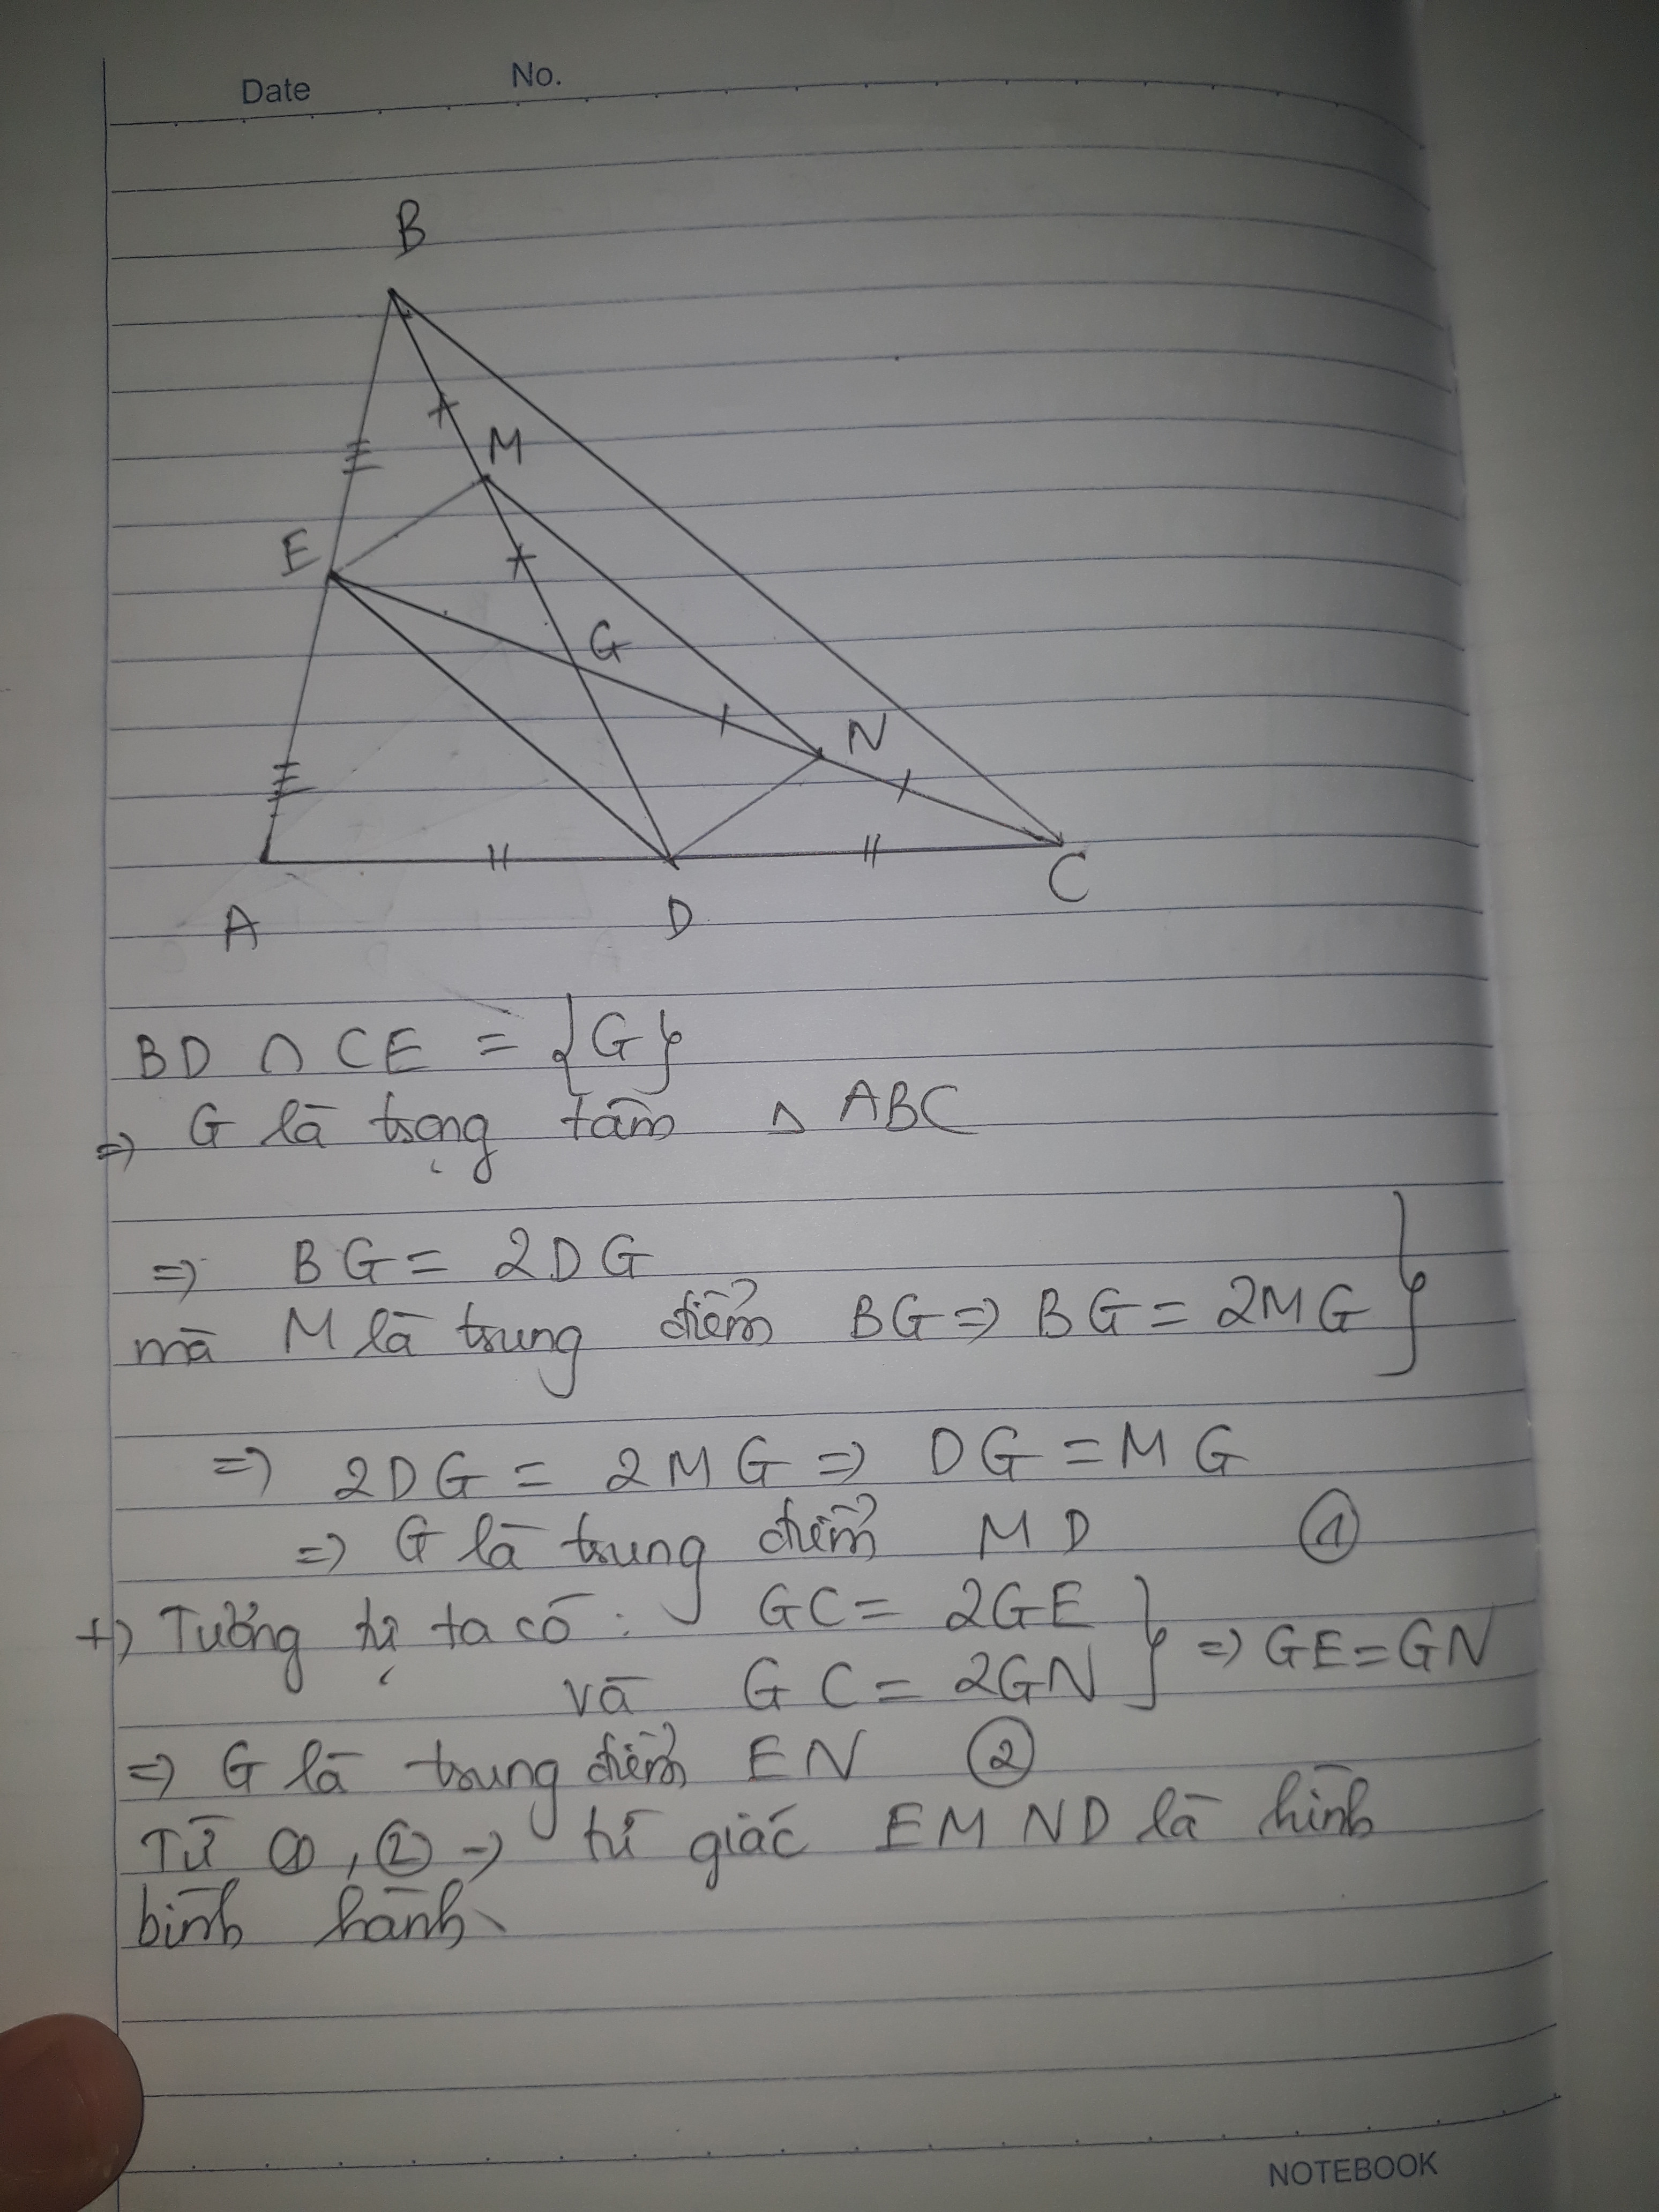 Date No.
B
M
E
G
N
A D C
BD ∩ CE = {G}
=> G là trọng tâm Δ ABC
=> BG = 2DG
mà M là trung điểm BG => BG = 2MG }
=> 2DG = 2MG => DG = MG
=> G là trung điểm MD ①
+) Tương tự ta có: GC = 2GE
và GC = 2GN } => GE = GN
=> G là trung điểm EN ②
Từ ①, ② -> tứ giác EMND là hình
bình hành
NOTEBOOK